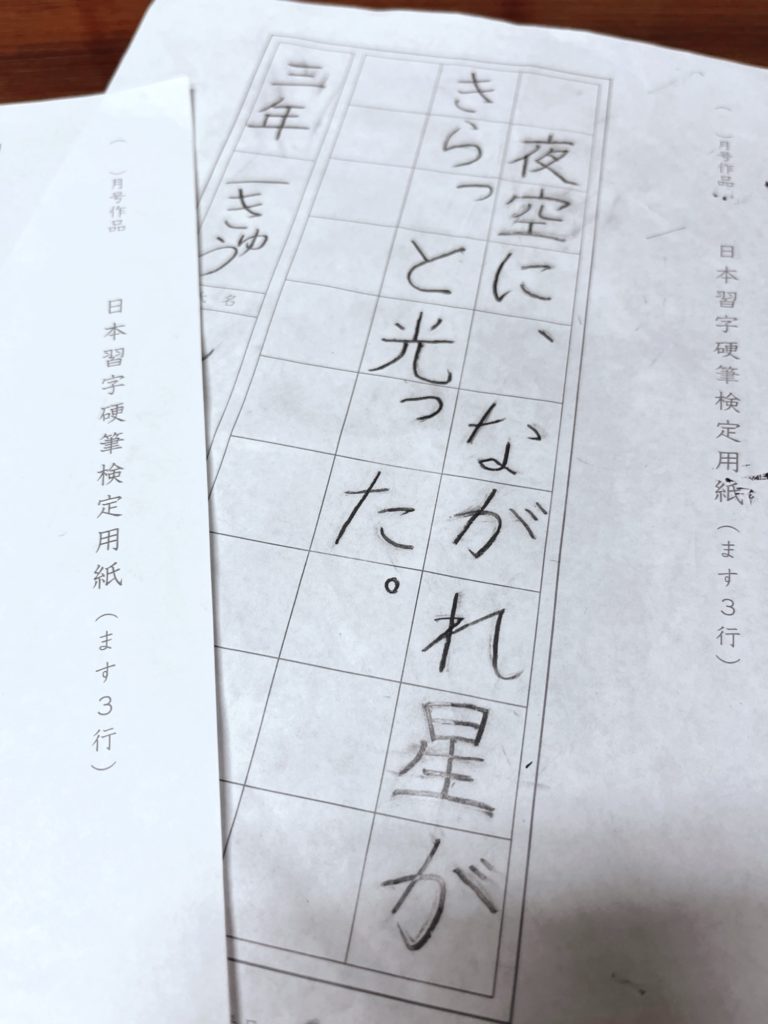 ( )月号作品 日本習字硬筆検定用紙(ます3行)
夜空に、ながれ星が
きらっと光った。
三年 一きゅう
氏名
( )月号作品 日本習字硬筆検定用紙(ます3行)